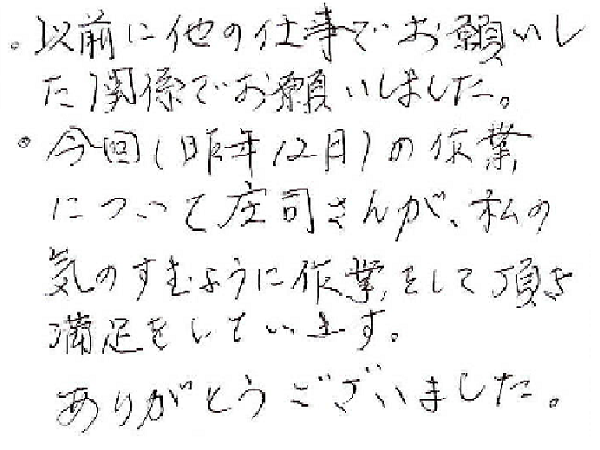 。以前に他の仕事でお願いし
た関係でお願いしました。
。今回(昨年12月)の作業
について庄司さんが、私の
気のすむように作業をして頂き
満足をしています。
ありがとうございました。